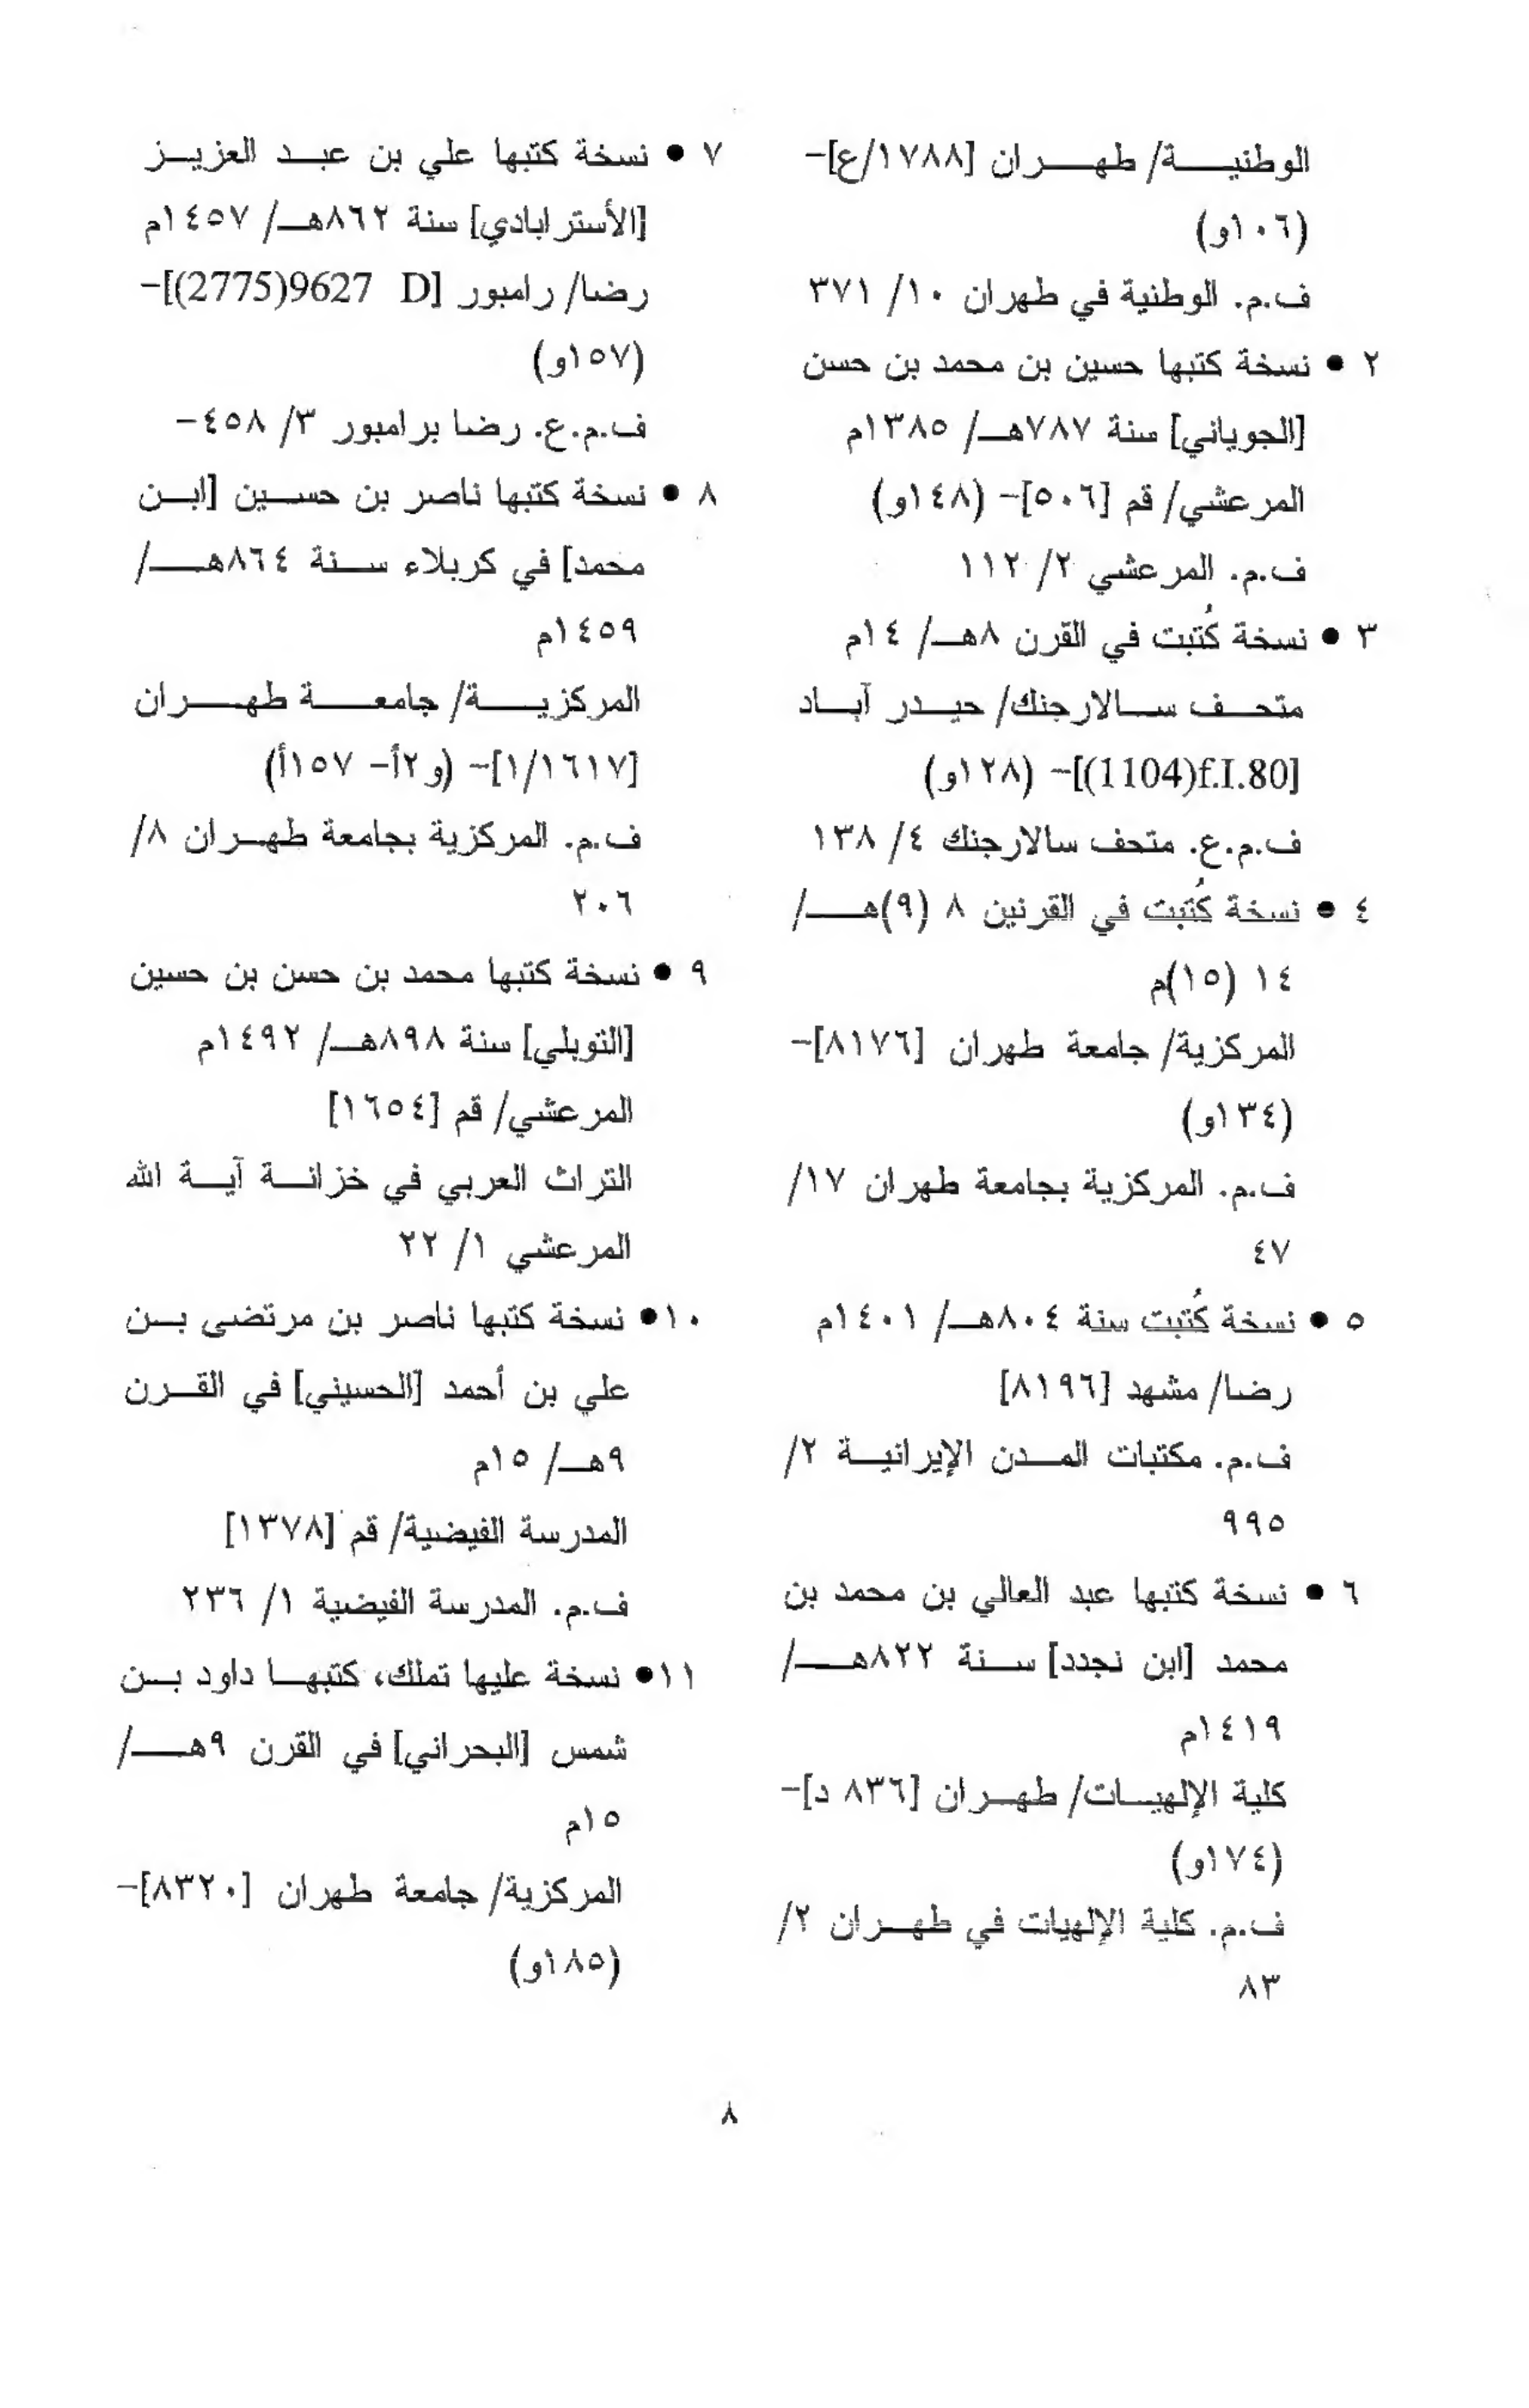 الوطنيـــة/ طهـــران [١٧٨٨/ع]-
(١٠٦و)
ف.م. الوطنية في طهران ١٠/ ٣٧١
٢ • نسخة كتبها حسين بن محمد بن حسن
[الجوياني] سنة ٧٨٧هـ/ ١٣٨٥م
المرعشي/ قم [٥٠٦]- (١٤٨و)
ف.م. المرعشي ٢/ ١١٢
٣ • نسخة كُتبت في القرن ٨هـ/ ١٤م
متحــف ســالارجنك/ حيــدر آبــاد
[f.I.80(1104)]- (١٢٨و)
ف.م.ع. متحف سالارجنك ٤/ ١٣٨
٤ • نسخة كُتبت في القرنين ٨ (٩)هـ/
١٤ (١٥)م
المركزية/ جامعة طهران [٨١٧٦]-
(١٣٤و)
ف.م. المركزية بجامعة طهران ١٧/
٤٧
٥ • نسخة كُتبت سنة ٨٠٤هـ/ ١٤٠١م
رضا/ مشهد [٨١٩٦]
ف.م. مكتبات المــدن الإيرانيــة ٢/
٩٩٥
٦ • نسخة كتبها عبد العالي بن محمد بن
محمد [ابن نجدد] ســنة ٨٢٢هـ/
١٤١٩م
كلية الإلهيــات/ طهــران [٨٣٦ د]-
(١٧٤و)
ف.م. كلية الإلهيات في طهــران ٢/
٨٣
٧ • نسخة كتبها علي بن عبــد العزيــز
[الأسترابادي] سنة ٨٦٢هـ/ ١٤٥٧م
رضا/ رامبور [D 9627(2775)]-
(١٥٧و)
ف.م.ع. رضا برامبور ٣/ ٤٥٨-
٨ • نسخة كتبها ناصر بن حســين [ابــن
محمد] في كربلاء ســنة ٨٦٤هـ/
١٤٥٩م
المركزيـــة/ جامعـــة طهـــران
[١/١٦١٧]- (و٢أ- ١٥٧أ)
ف.م. المركزية بجامعة طهــران ٨/
٢٠٦
٩ • نسخة كتبها محمد بن حسن بن حسين
[التوبلي] سنة ٨٩٨هـ/ ١٤٩٢م
المرعشي/ قم [١٦٥٤]
التراث العربي في خزانــة آيــة الله
المرعشي ١/ ٢٢
١٠• نسخة كتبها ناصر بن مرتضى بــن
علي بن أحمد [الحسيني] في القــرن
٩هـ/ ١٥م
المدرسة الفيضية/ قم [١٣٧٨]
ف.م. المدرسة الفيضية ١/ ٢٣٦
١١• نسخة عليها تملك، كتبهــا داود بــن
شمس [البحراني] في القرن ٩هـ/
١٥م
المركزية/ جامعة طهران [٨٣٢٠]-
(١٨٥و)
٨